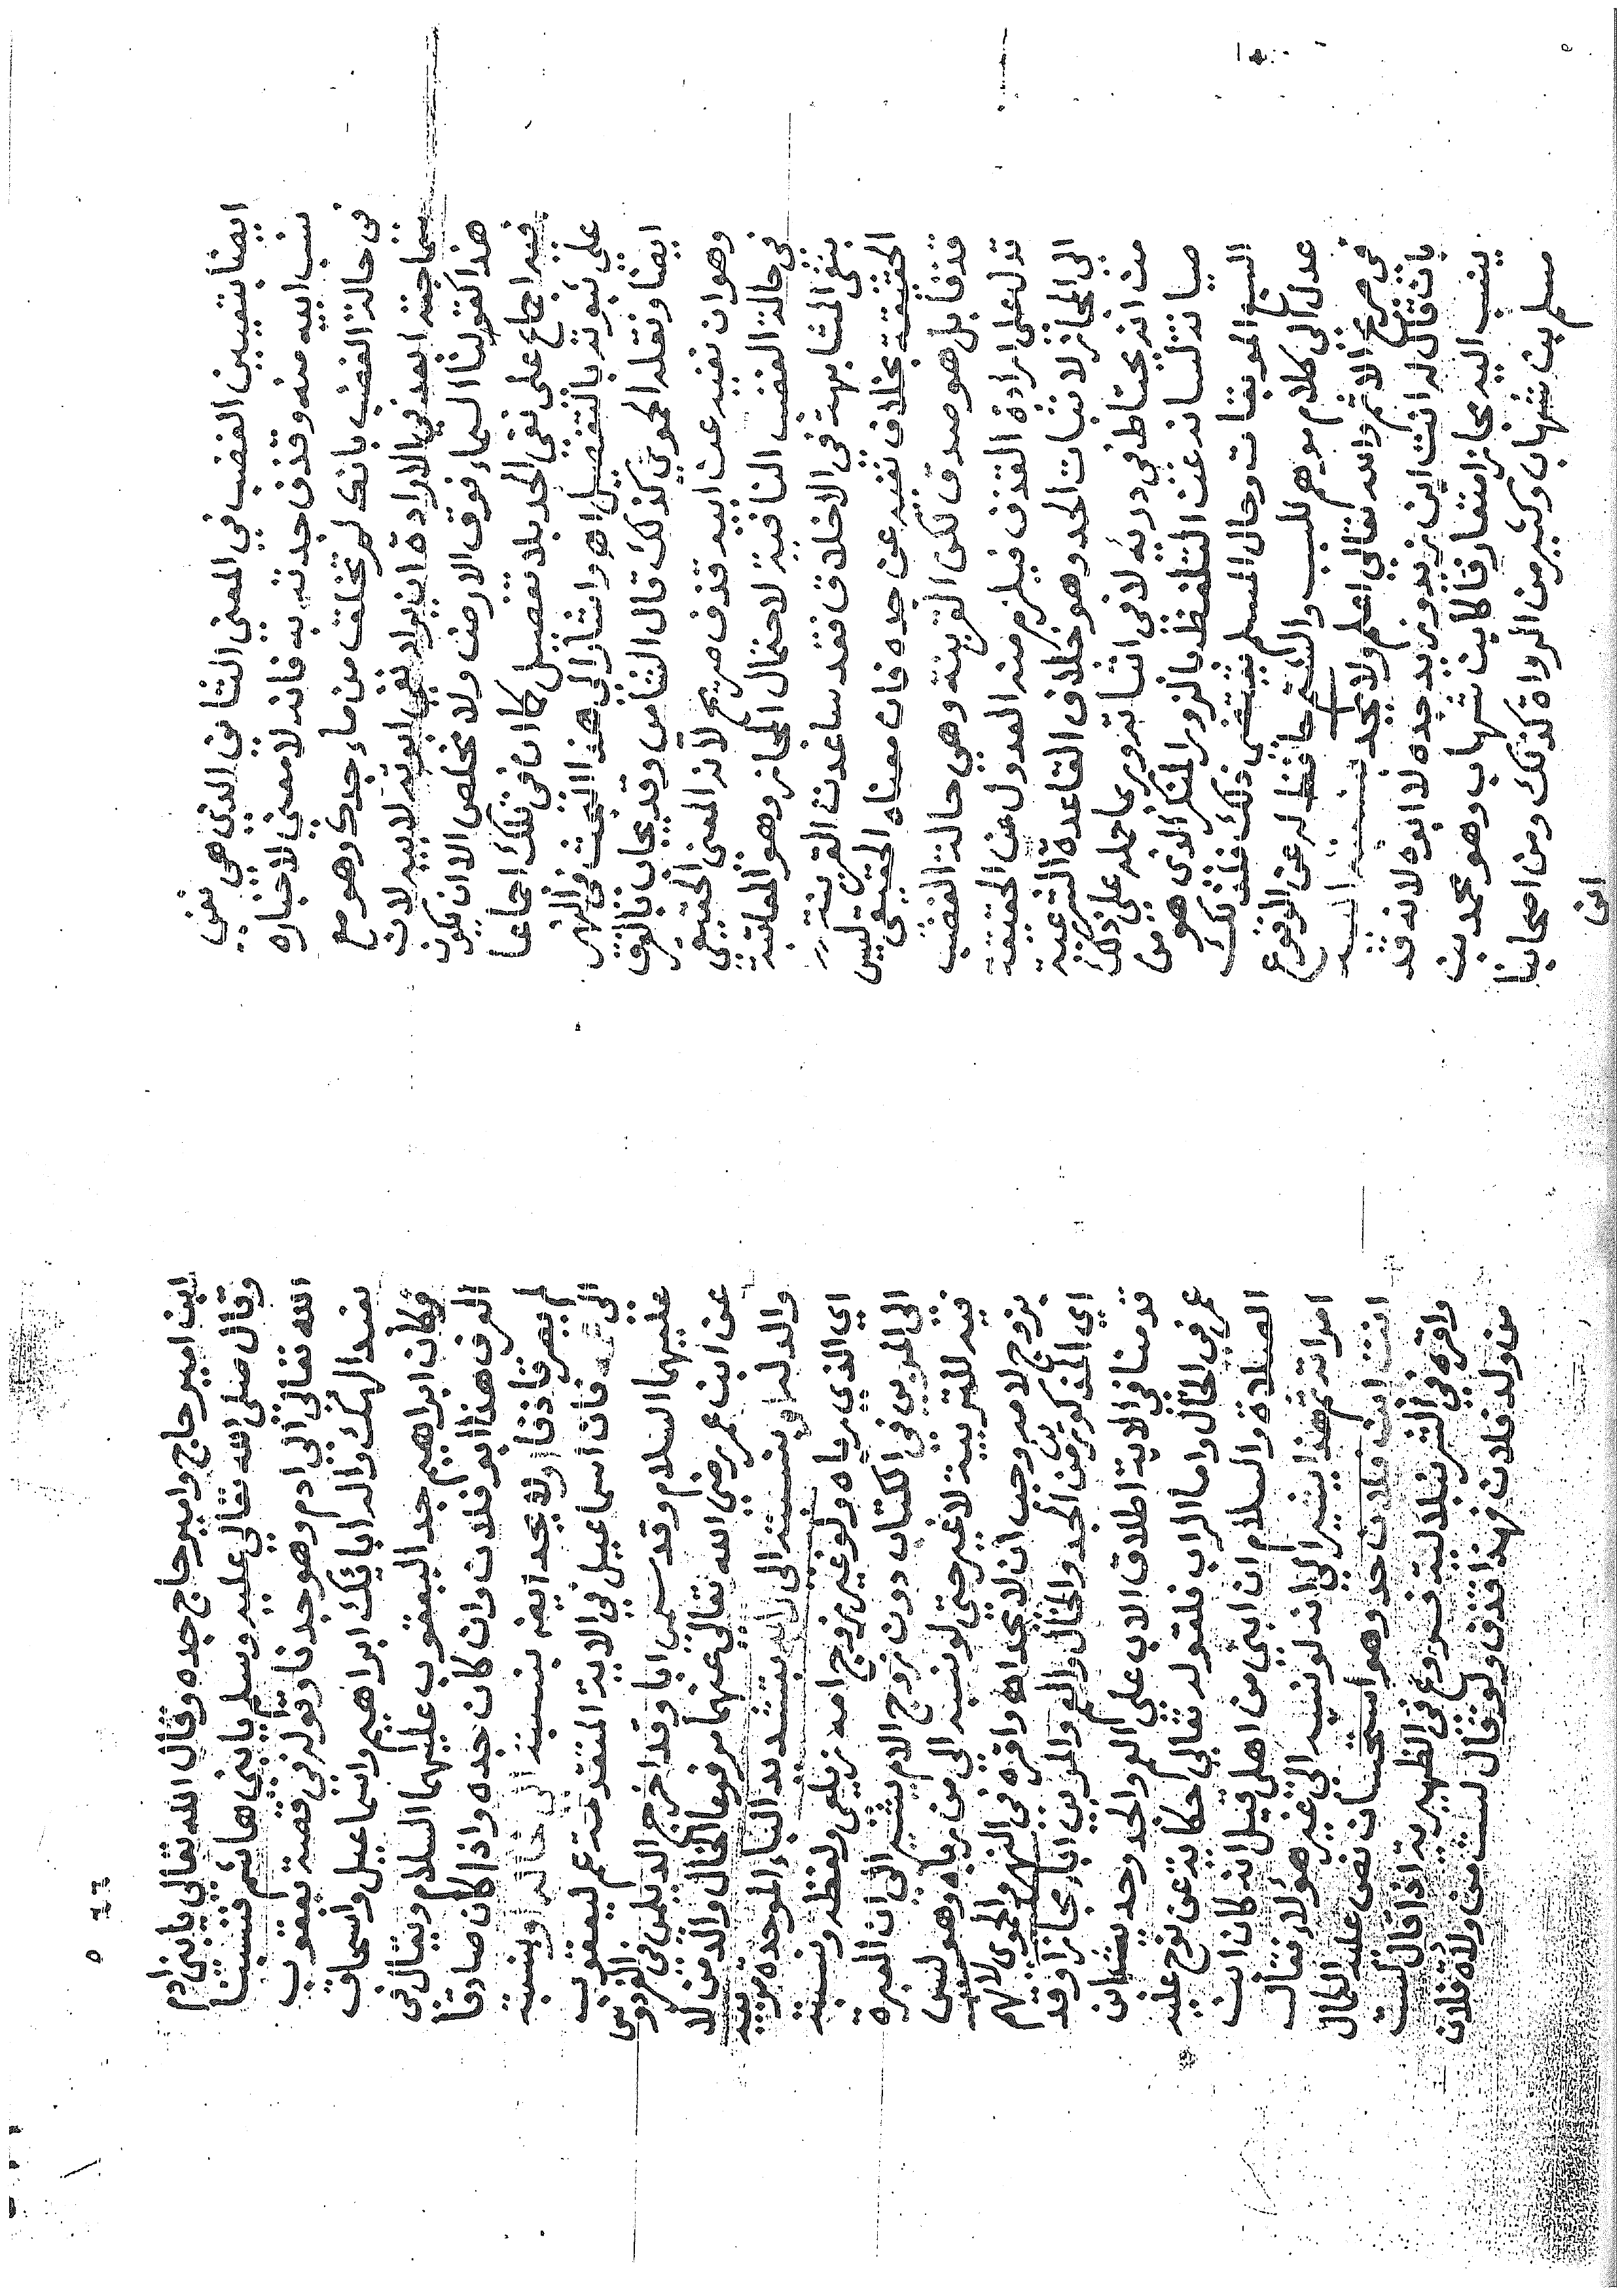 ايضا بتعيين الغضب في المعنى الثاني الذي هي نفي
نسب ابيه منه وقذف جدته به فانه لا معنى لاخباره
في حالة الغضب بانك لم تخلق من ماء جدك وهو مع
سماجته ابعد في الارادة ان يراد نفي ابوته لابيه لان
هذا كقولنا السماء فوق الارض ولا مخلص الا ان يكون
فيه اجماع على نفي الحد بلا تفصيل كما ان في تلك اجماعا
على ثبوته بالتفصيل اه واشار الى هذا البحث في النهر
ايضا ونقله الحموي كذلك قال الشامي وقد يجاب بالفرق
وهو ان نفيه عن ابيه قذف صريح لانه المعنى الحقيقي
في حالة الغضب النافية لاحتمال المجاز وهو المعاتبة
بنفي المشابهة في الاخلاق فقد ساعدت القرينة
الحقيقة بخلاف نفيه عن جده فان معناه الحقيقي ليس
قذفا بل هو صدق لكن القرينة وهي حالة الغضب
تدل على ارادة القذف فيلزم منه العدول عن الحقيقة
الى المجاز لاثبات الحد وهو خلاف القاعدة الشرعية
من انه يحتاط في درئه لا في اثباته وربما حمله على ذلك
صيانة لسانه عن التلفظ بالزور المنكر الذي هو من
السبع الموبقات وحال المسلم يقتضي ذلك فلذلك
عدل الى كلام موهم للسب والشتم حافظا له عن الوقوع
في صريح الاثم والله تعالى اعلم ولا يحد بنسبته اليه
بان قال له انت ابن زيد وزيد جده لا ابوه لانه قد
ينسب اليه مجازا متعارفا كابن شهاب وهو محمد بن
مسلم بن شهاب وكثير من الرواة كذلك ومن اصحابنا
ابن
ابن امير حاج وامير حاج جده وقال الله تعالى يا بني ادم
وقال صلى الله تعالى عليه وسلم يا بني هاشم فنسبنا
الله تعالى الى ادم وهو جدنا وقوله في قصة يعقوب
نعبد الهك واله ابائك ابراهيم واسماعيل واسحاق
وكان ابراهيم جد اليعقوب عليهما السلام ويقال في
العرف هذا ابو فلان وان كان جده واذا كان صادقا
لم يصر قاذفا ولا يحد ايضا بنسبة الى خاله او بنسبة
الى عمه فان اسماعيل في الاية المتقدمة عم ليعقوب
عليهما السلام وقد سمي ابا وقد اخرج الديلمي في الفردوس
عن ابن عمر رضي الله تعالى عنهما مرفوعا الخال والد من لا
والد له او بنسبته الى رابه بتشديد الباء الموحدة مربيه
اي الذي رباه ولو غير زوج امه زيلعي ولفظه ونسبة
الى المربي في الكتاب دون زوج الام يشير الى ان العبرة
فيه للتربية لا غير حتى لو نسبه الى من رباه وهو ليس
بزوج لامه وجب ان لا يحد اه واقره في النهر والحموي لانهم
اي المذكورين من الجد والخال والعم والمربي اباء مجازا وقد
قدمنا في الاية اطلاق الاب على العم والجد وحديث ابن
عمر في الخال واما الراب فلقوله تعالى حكاية عن نوح عليه
الصلاة والسلام ان ابني من اهلي قيل انه كان ابن
امراته ثم هذا يشير الى انه لو نسبه الى غير هؤلاء فقال
انت ابن فلان حد وهو استحسان نص عليه الكمال
واقره في الشرنبلالية فروع في الظهيرية اذا قال لست
من ولد فلان فهذا قذف ولو قال لست من ولادة فلان